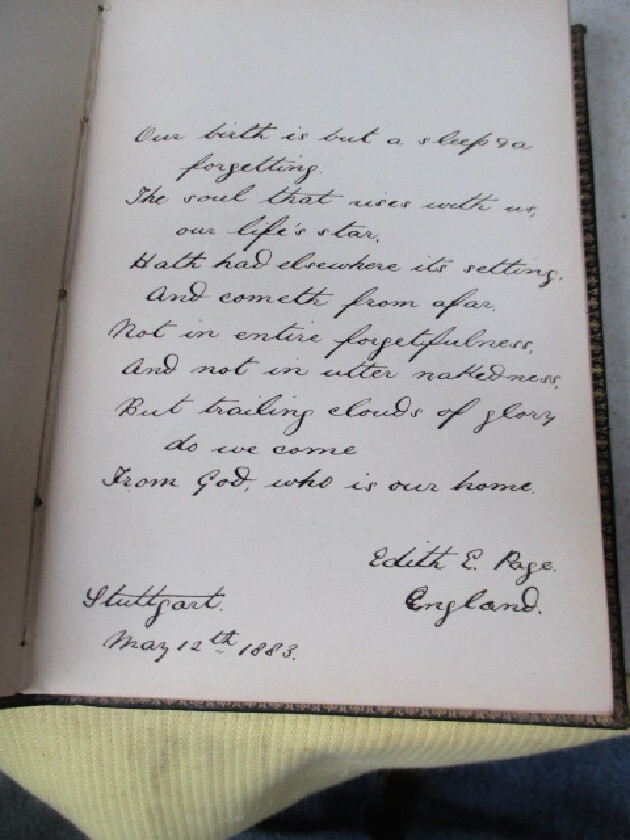 Our birth is but a sleep & a
forgetting.
The soul that rises with us,
our life's star,
Hath had elsewhere its setting.
And cometh from afar.
Not in entire forgetfulness,
And not in utter nakedness,
But trailing clouds of glory
do we come
From God, who is our home.
Edith E. Page.
Stuttgart.
England.
May 12th 1883.